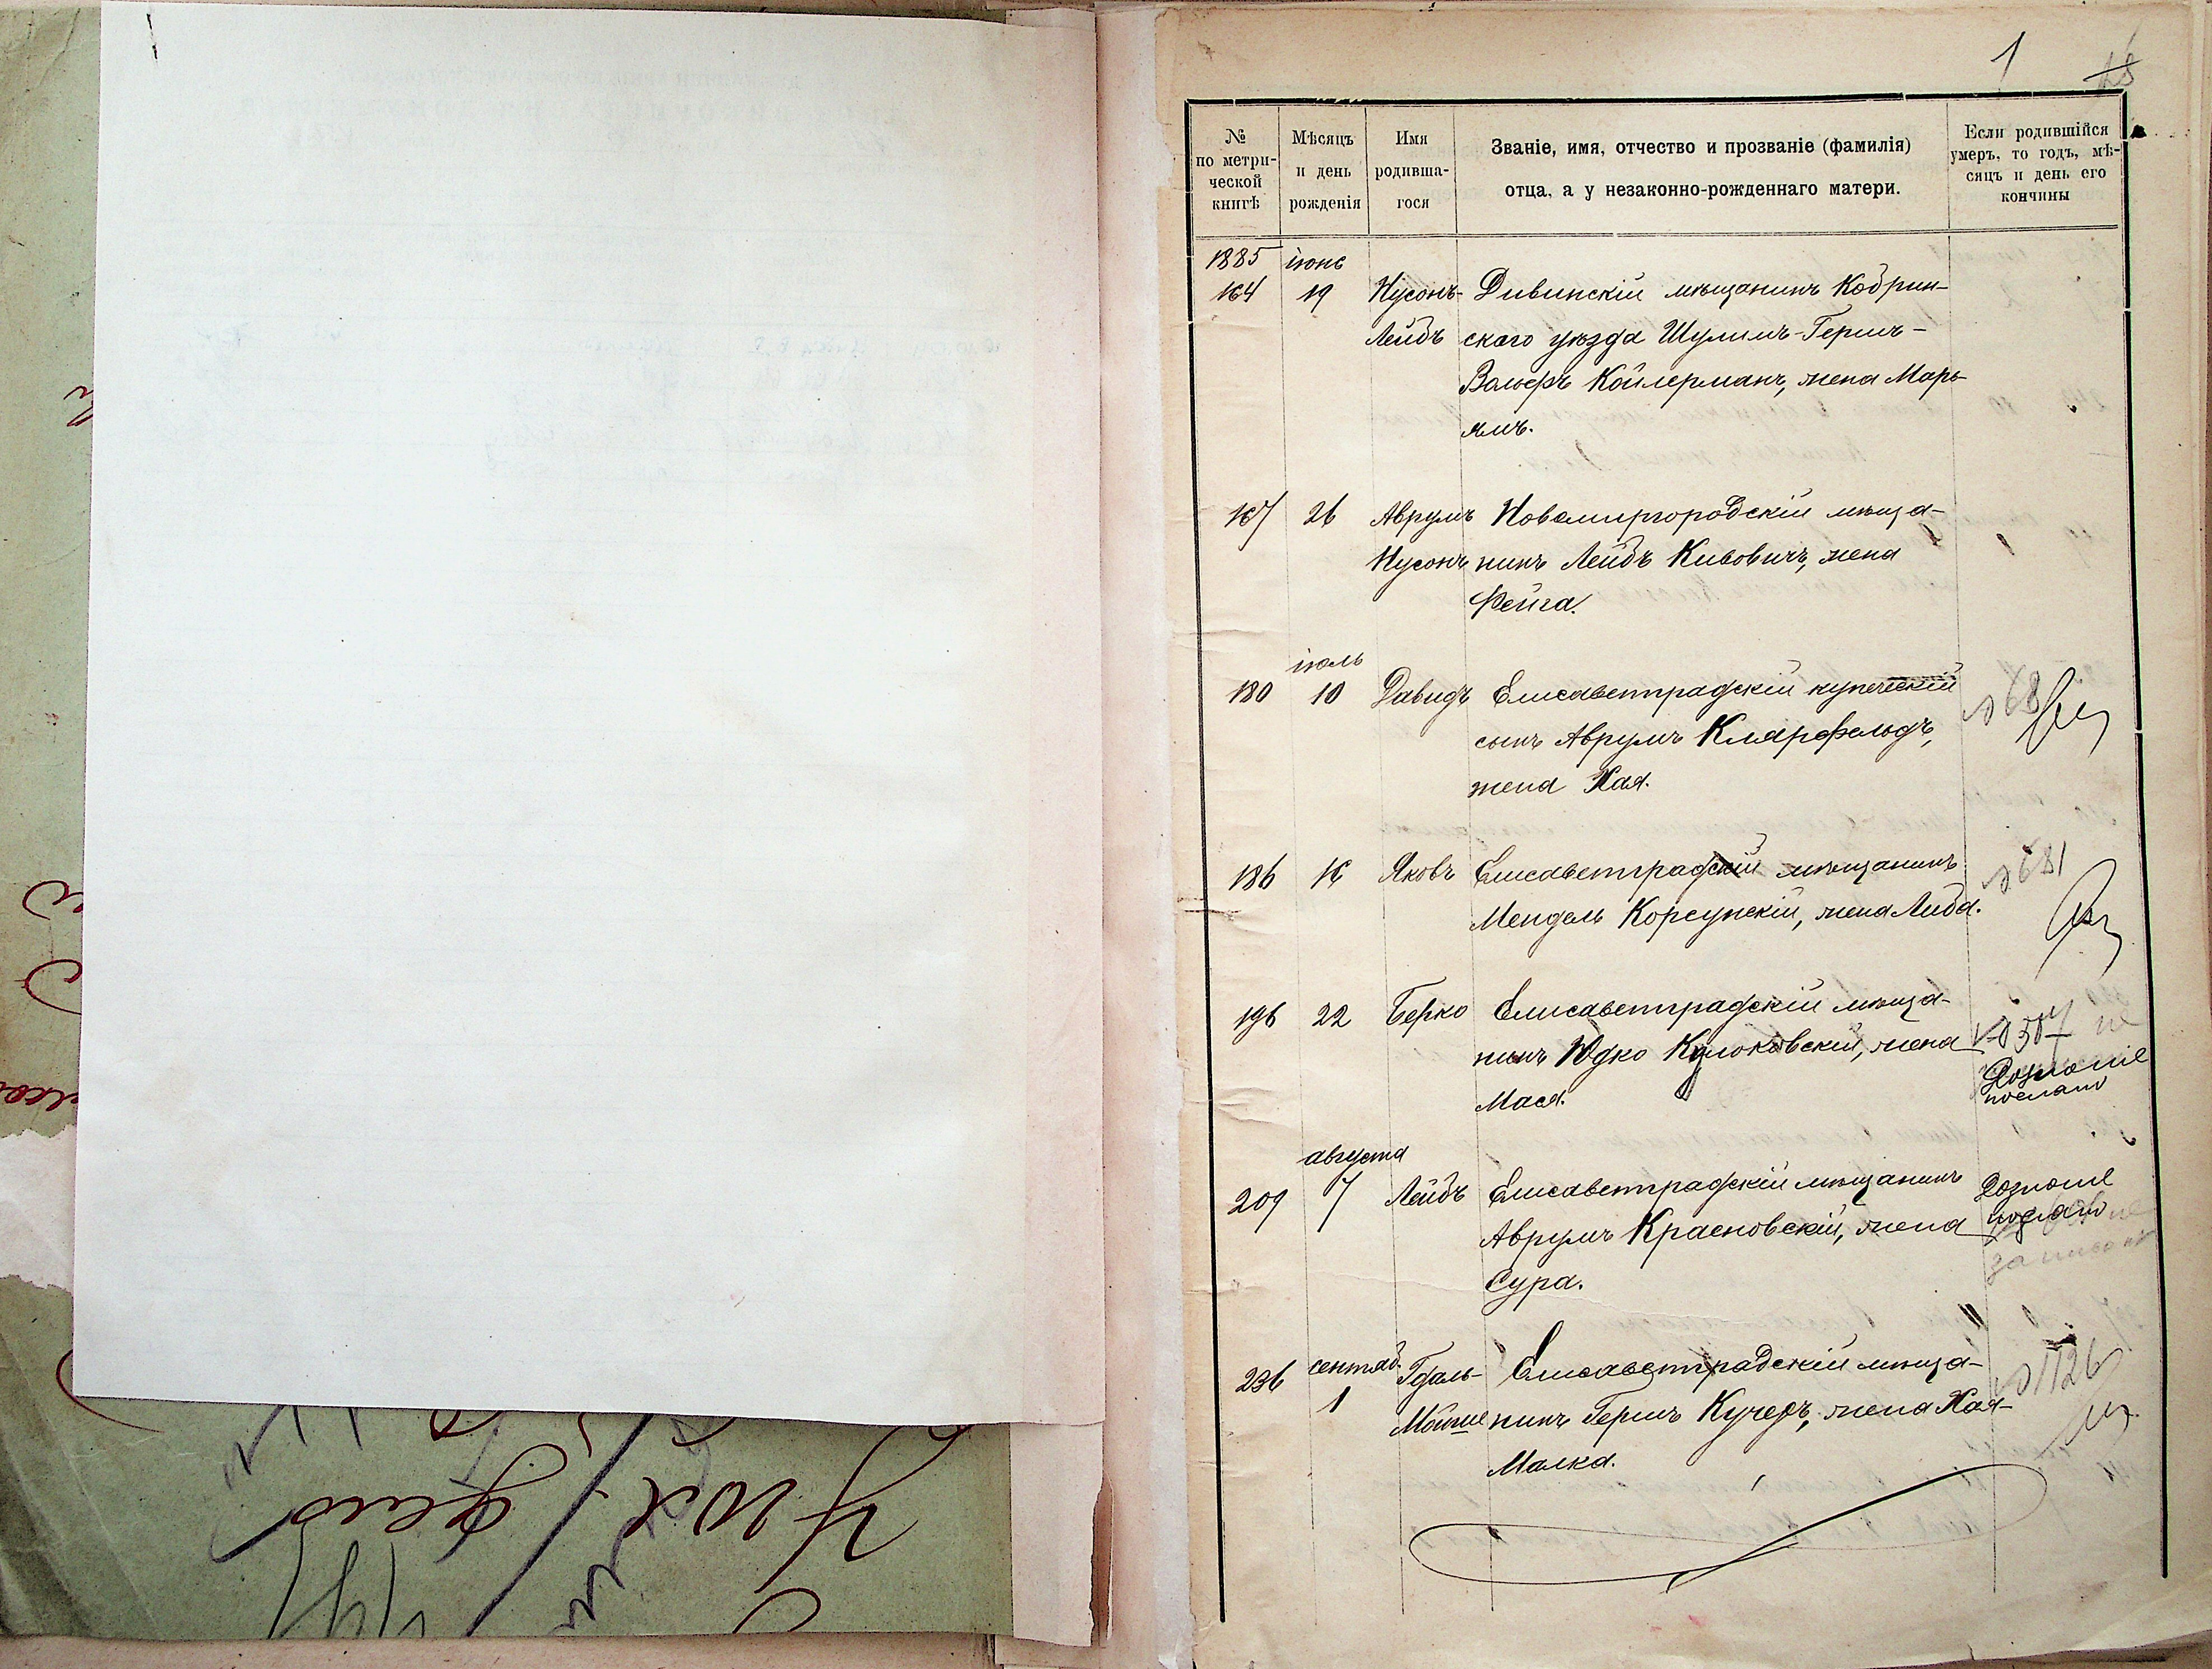 1
№ по метрической книгѣ
Мѣсяцъ и день рожденія
Имя родившагося
Званіе, имя, отчество и прозваніе (фамилія)
отца, а у незаконно-рожденнаго матери.
Если родившійся
умеръ, то годъ, мѣ-
сяцъ и день его
кончины
1885 іюнь
164 19 Нусонъ- Дивинскій мѣщанинъ Кобрин-
Лейбъ скаго уѣзда Шулимъ-Гершъ-
Вольфъ Койлерманъ, жена Марь-
ямъ.
167 26 Аврумъ Новомиргородскій мѣща-
Нусонъ нинъ Лейбъ Кивовичъ, жена
Фейга.
іюль
180 10 Давидъ Елисаветградскій купеческій
сынъ Аврумъ Клярфельдъ,
жена Хая.
186 16 Яковъ Елисаветградскій мѣщанинъ
№ 681
Мендель Корсунскій, жена Либа.
196 22 Берко Елисаветградскій мѣща-
нинъ Юдко жена
Мася.
послано
августа
209 7 Лейбъ Елисаветградскій мѣщанинъ
Аврумъ Красновскій, жена
Сура.
236 сентяб. Гдаль- Елисаветградскій мѣща-
№ 1126
1 Мойше нинъ Гершъ Кучеръ, жена Хая-
Малка.